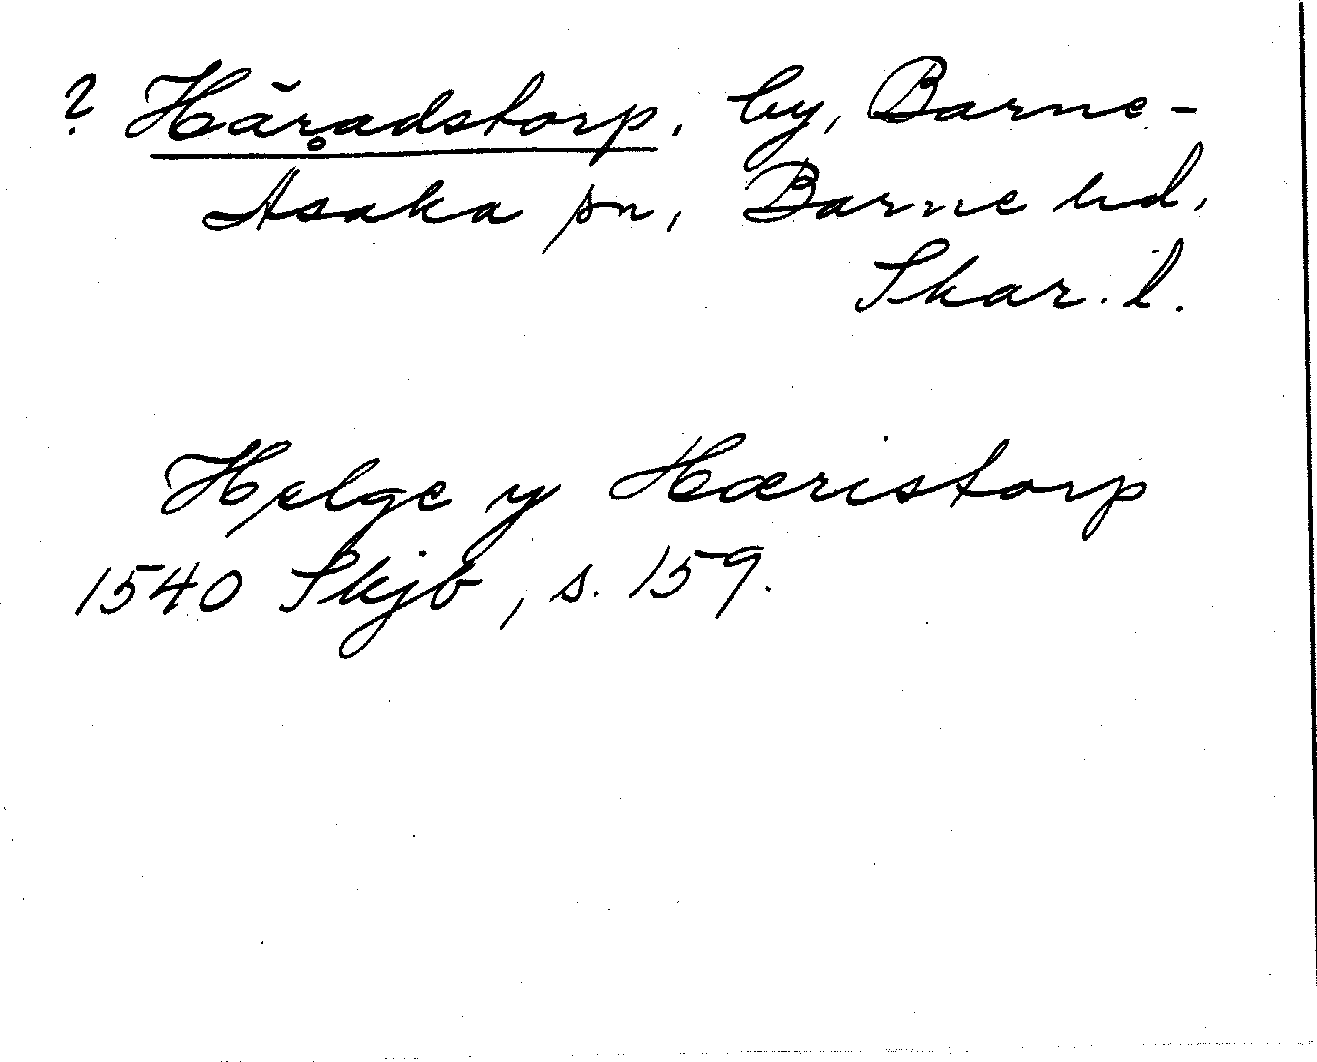 ? Häradstorp, by, Barne-
Åsaka sn, Barne hd,
Skar. l.
Helge y Hæristorp
1540 Skjb, s. 159.